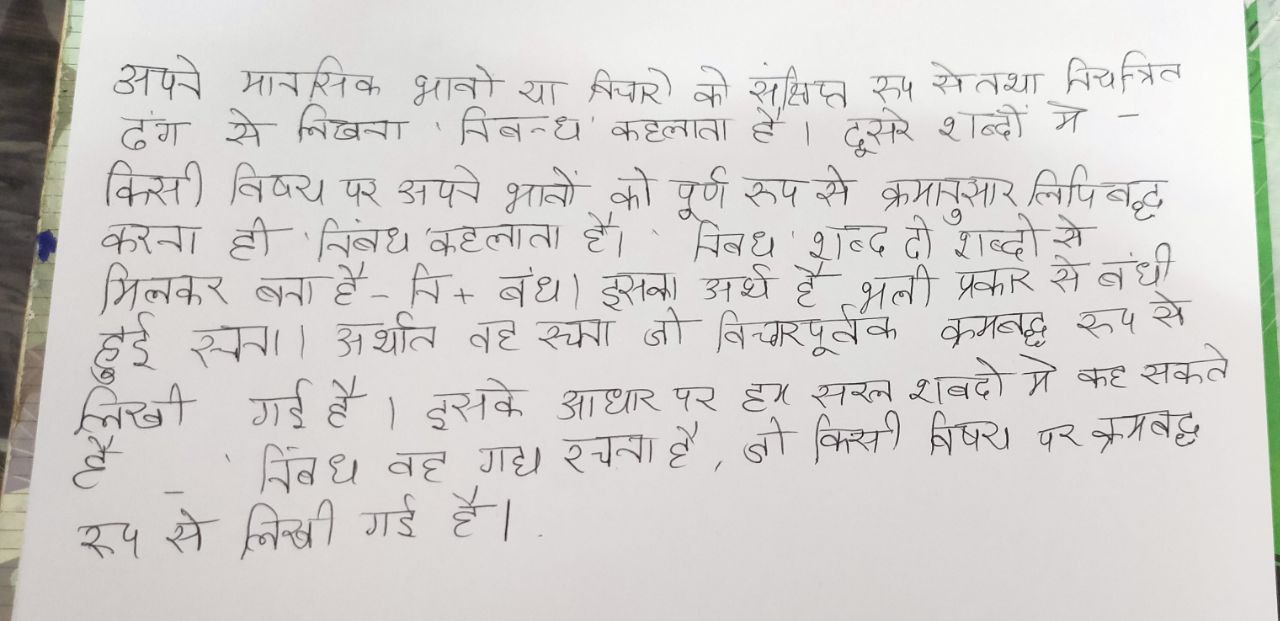 अपने मानसिक भावो या विचारो को संक्षिप्त रूप से तथा नियन्त्रित
ढंग से लिखना 'निबन्ध' कहलाता है। दूसरे शब्दों मे -
किसी विषय पर अपने भावों को पूर्ण रूप से क्रमानुसार लिपि बद्ध
करना ही 'निबंध' कहलाता है। 'निबध' शब्द दो शब्दो से
मिलकर बना है - नि + बंध। इसका अर्थ है भली प्रकार से बंधी
हुई रचना। अर्थात वह रचना जो विचारपूर्वक क्रमबद्ध रूप से
लिखी गई है। इसके आधार पर हम सरल शबदो मे कह सकते
है - 'निंबध वह गद्य रचना है, जो किसी विषय पर क्रमबद्ध
रूप से लिखी गई है।